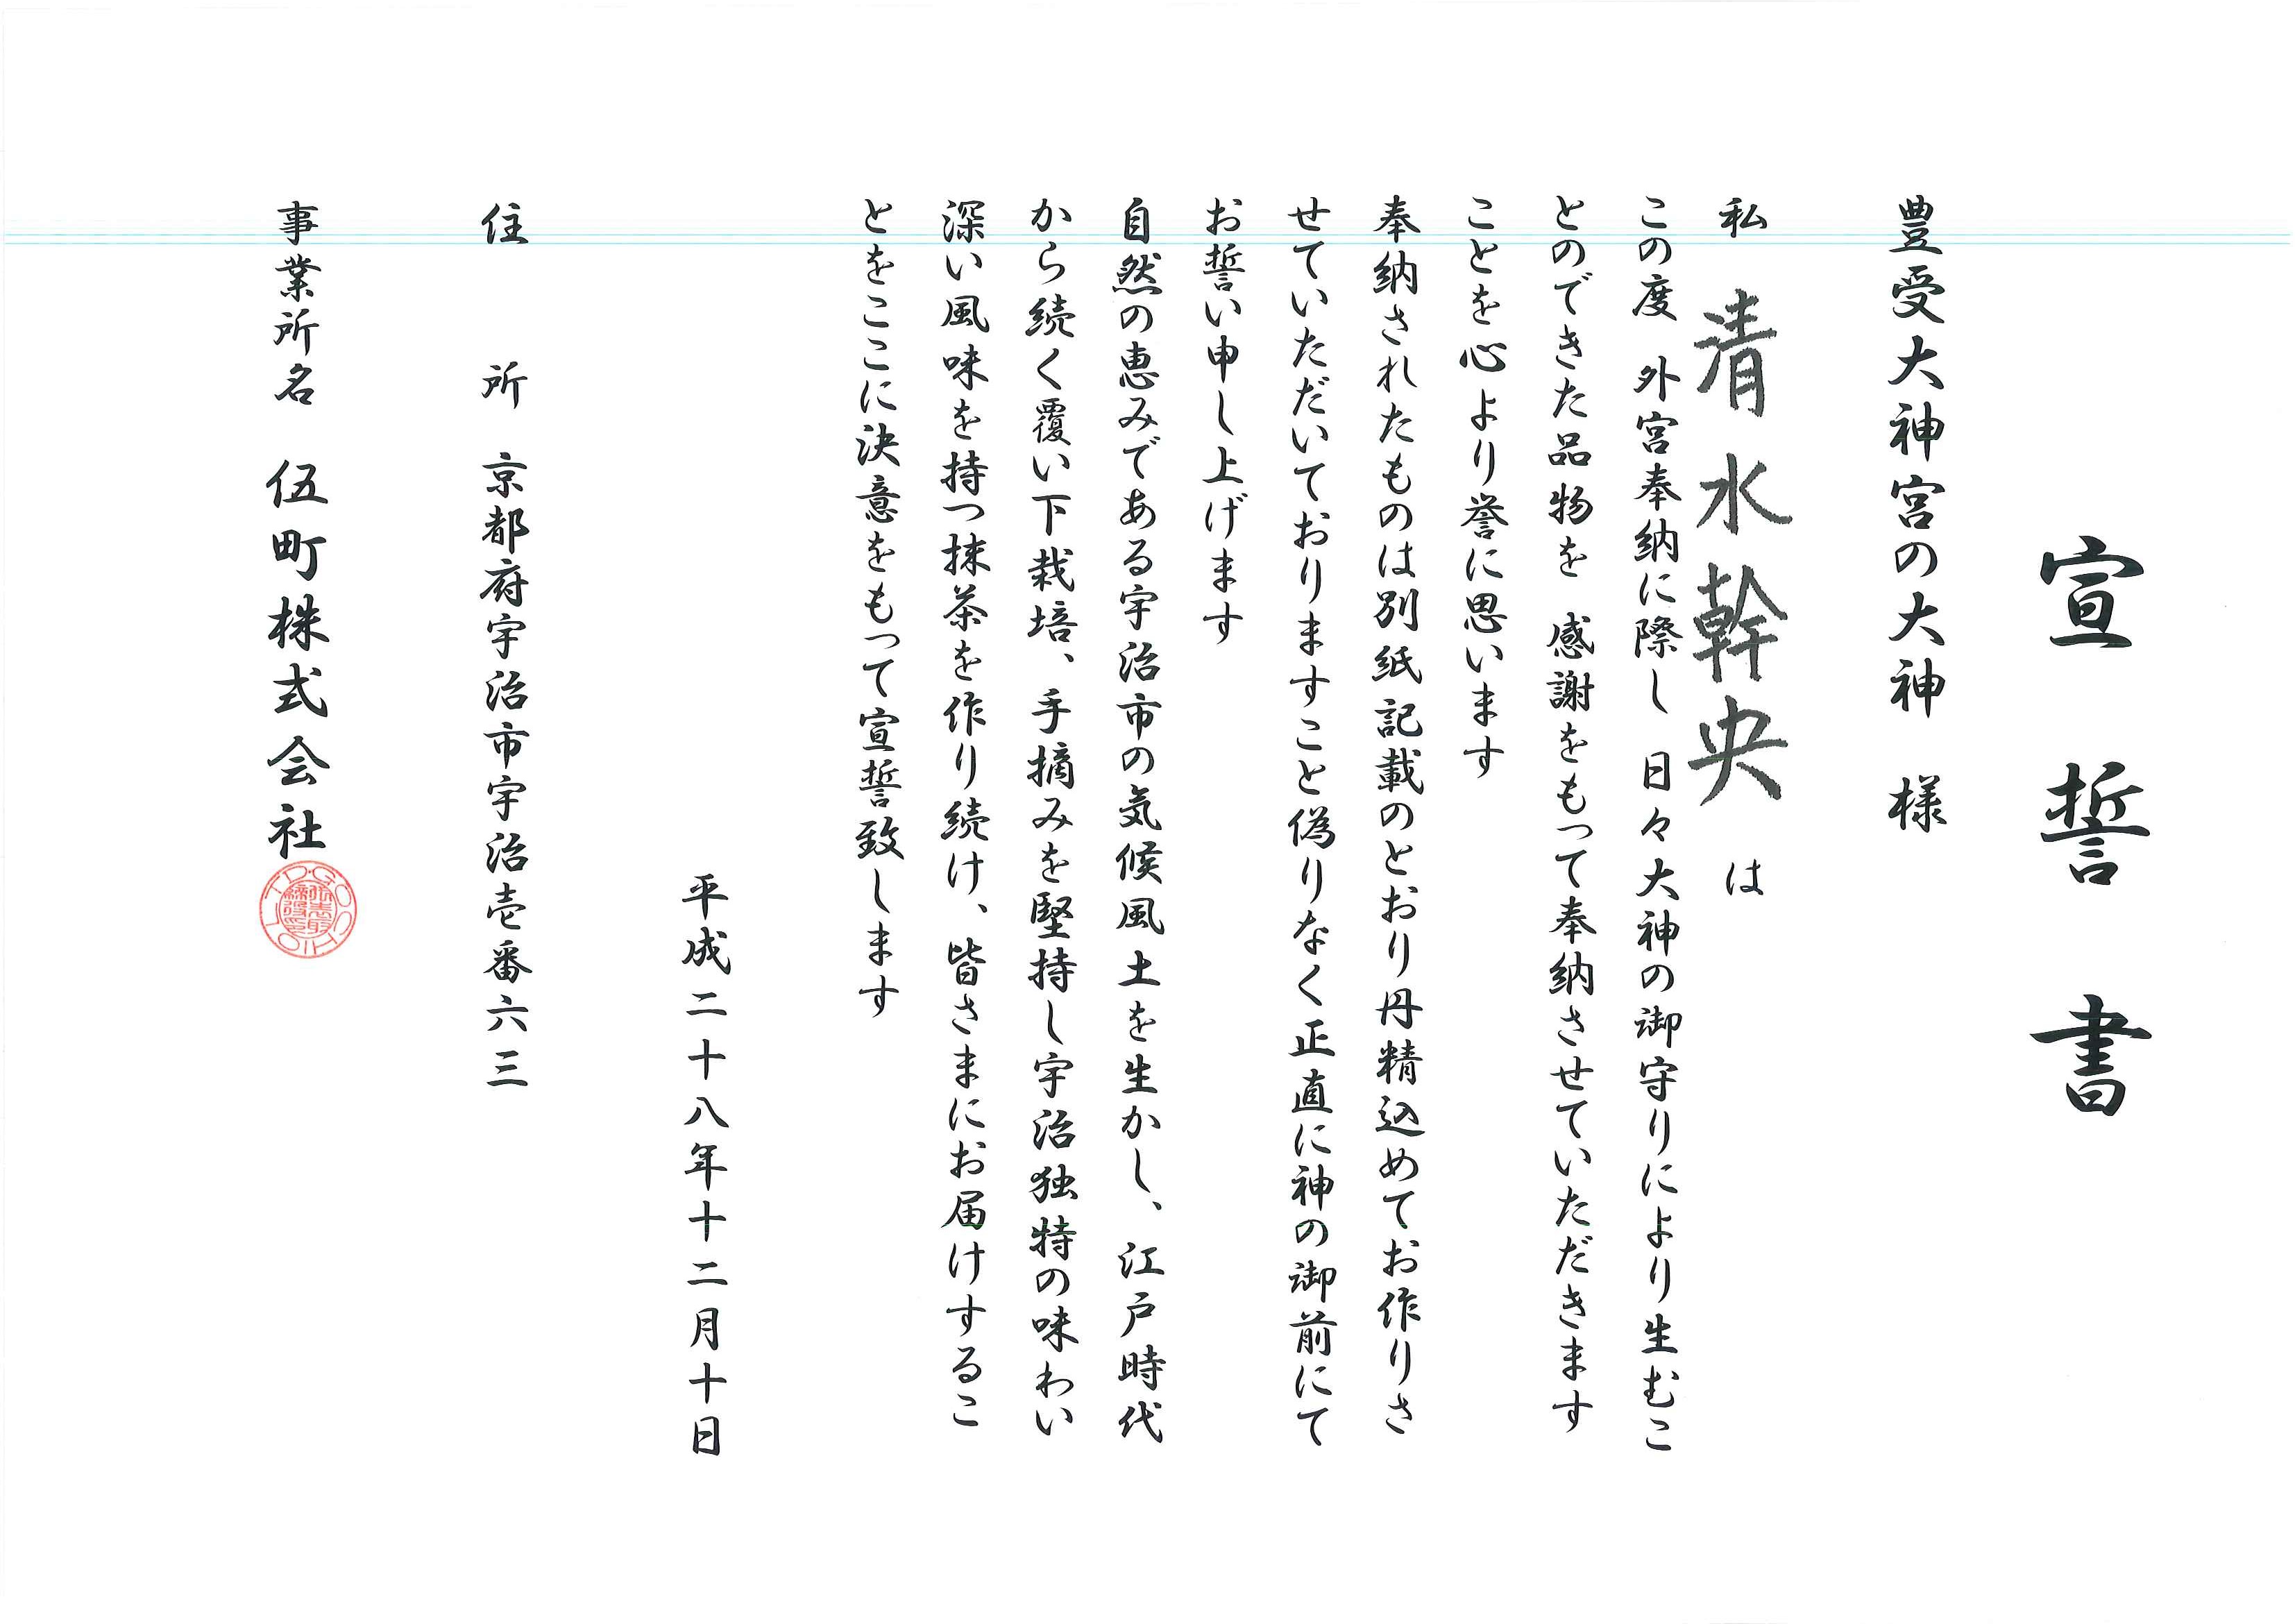 宣誓書
豊受大神宮の大神 様
私 清水幹央 は
この度 外宮奉納に際し 日々大神の御守りにより生むこ
とのできた品物を 感謝をもって奉納させていただきます
ことを心より誉に思います
奉納されたものは別紙記載のとおり丹精込めてお作りさ
せていただいておりますこと偽りなく正直に神の御前にて
お誓い申し上げます
自然の恵みである宇治市の気候風土を生かし、江戸時代
から続く覆い下栽培、手摘みを堅持し宇治独特の味わい
深い風味を持つ抹茶を作り続け、皆さまにお届けするこ
とをここに決意をもって宣誓致します
平成二十八年十二月十日
住 所 京都府宇治市宇治壱番六三
事業所名 伍町株式会社